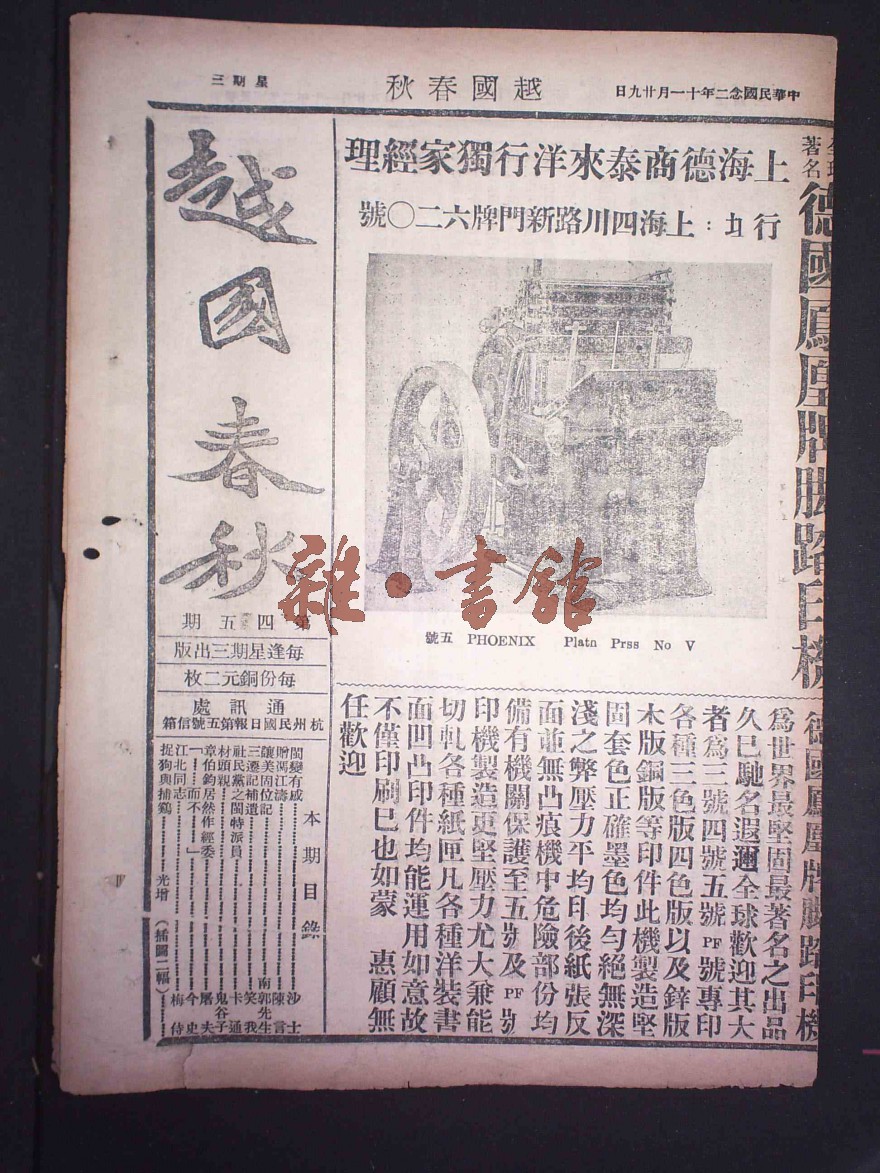 中華民國念二年十一月廿九日
越國春秋
星期三
著名
德國鳳凰牌脚踏印機
上海德商泰來洋行獨家經理
行址：上海四川路新門牌六二〇號
五號 PHOENIX Platn Prss No V
德國鳳凰牌脚踏印機
為世界最堅固最著名之出品
久已馳名遐邇全球歡迎其大
者為三號四號五號PF號專印
各種三色版四色版以及鋅版
木版銅版等印件此機製造堅
固套色正確墨色均勻絕無深
淺之弊壓力平均印後紙張反
面並無凸痕機中危險部份均
備有機關保護至五號及PF號
印機製造更堅壓力尤大兼能
切軋各種紙匣凡各種洋裝書
面凹凸印件均能運用如意故
不僅印刷已也如蒙 惠顧無
任歡迎
越國春秋
第四五期
每逢星期三出版
每份銅元二枚
通訊處
杭州民國日報第五號信箱
本期目錄
閩變有感 沙士
贈馮江濤 陳言
鑲美固位記 南郭先生
三遷記補遺 笑我
社民黨之閩特派員 卡通
材頭親 鬼谷子
章伯鈞居然作經委 屠夫
「一……而不……」 今史
江北同志 梅侍
捉狗與捕鷄 光增（插圖二幅）
雜·書館